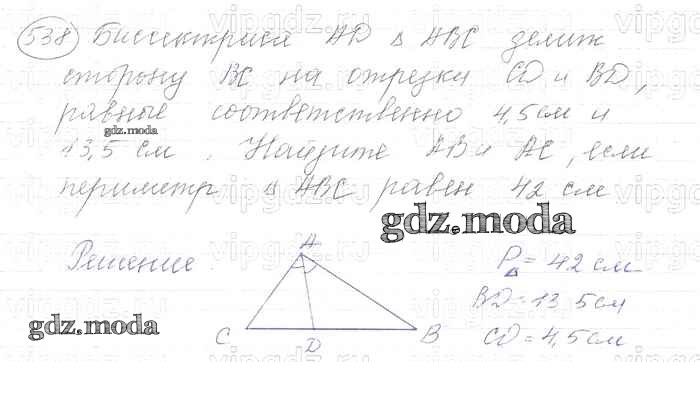 538 Биссектриса AD Δ ABC делит
сторону BC на отрезки CD и BD,
равные соответственно 4,5 см и
gdz.moda
13,5 см. Найдите AB и AC, если
периметр Δ ABC равен 42 см
gdz.moda
Решение
A
P Δ = 42 см
BD = 13,5 см
gdz.moda
C
D
B
CD = 4,5 см